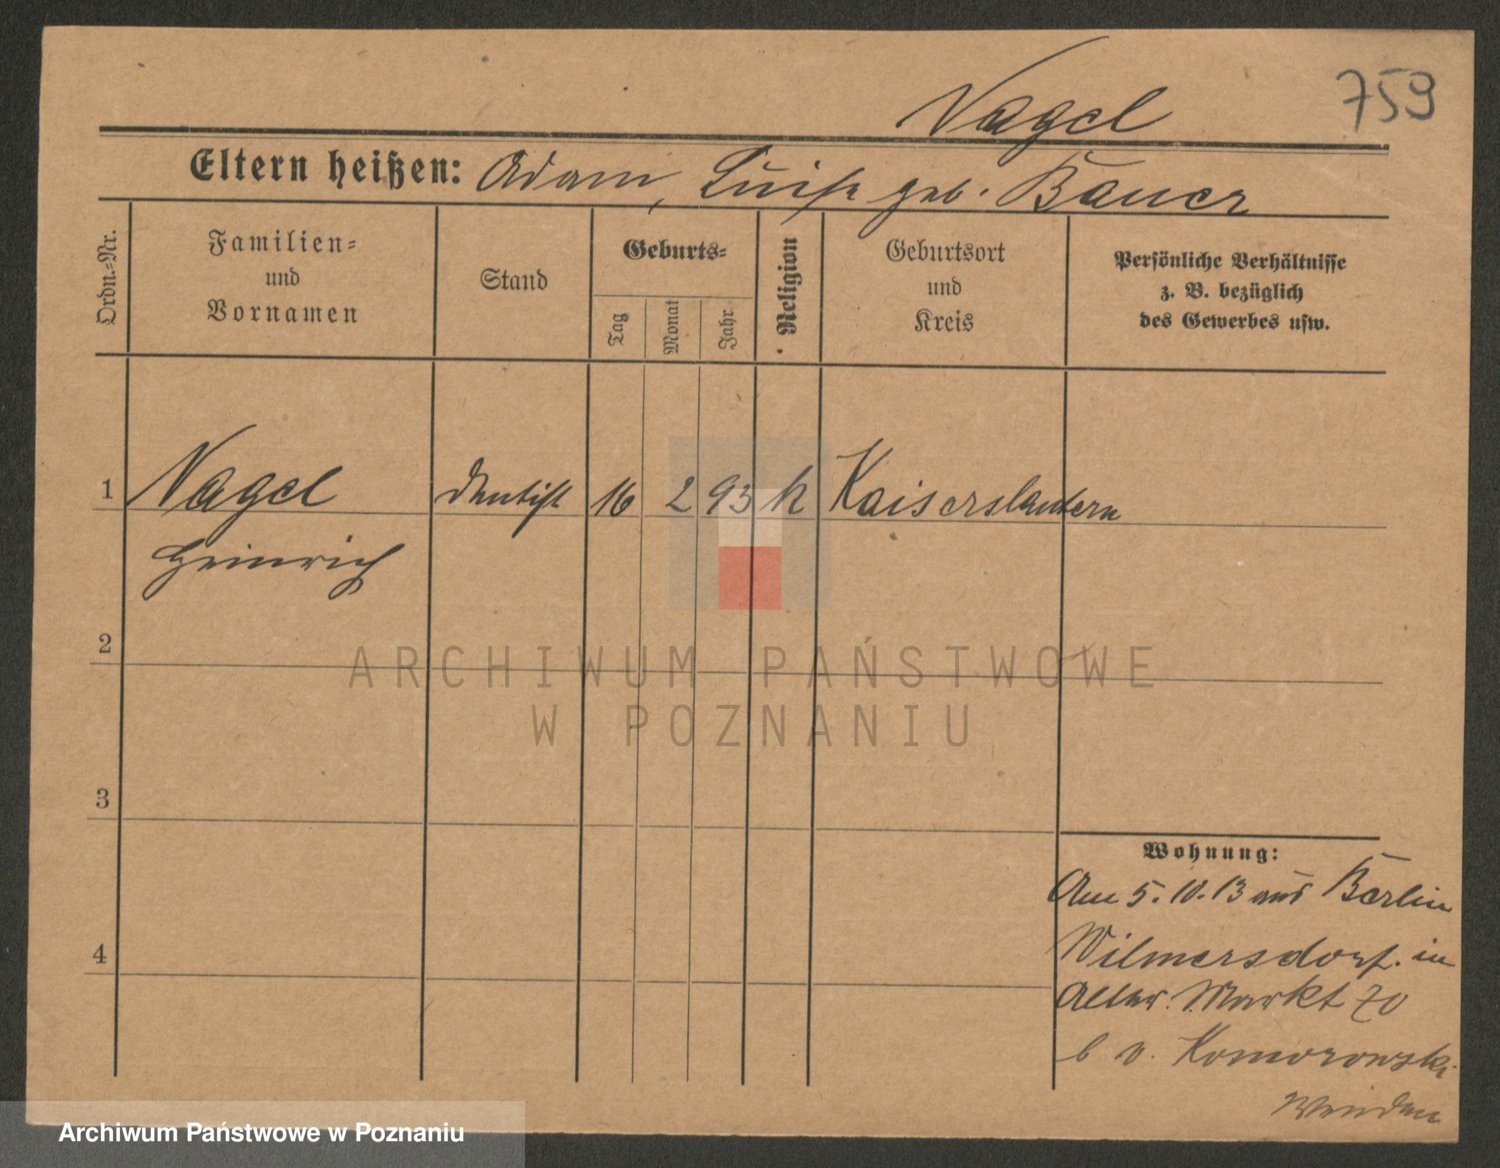 Nagel
759
Eltern heißen: Adam, Luise geb. Bauer
Ordn.-Nr.
Familien-
und
Vornamen
Stand
Geburts-
Tag
Monat
Jahr
Religion
Geburtsort
und
Kreis
Persönliche Verhältnisse
z. B. bezüglich
des Gewerbes usw.
1 Nagel Dentist 16 2 93 k Kaiserslautern
Heinrich
2
3
4
ARCHIWUM PAŃSTWOWE
W POZNANIU
Wohnung:
Am 5.10.13 aus Berlin
Wilmersdorf. in
Markt 70
b v. Komorowski
Wenden
Archiwum Państwowe w Poznaniu